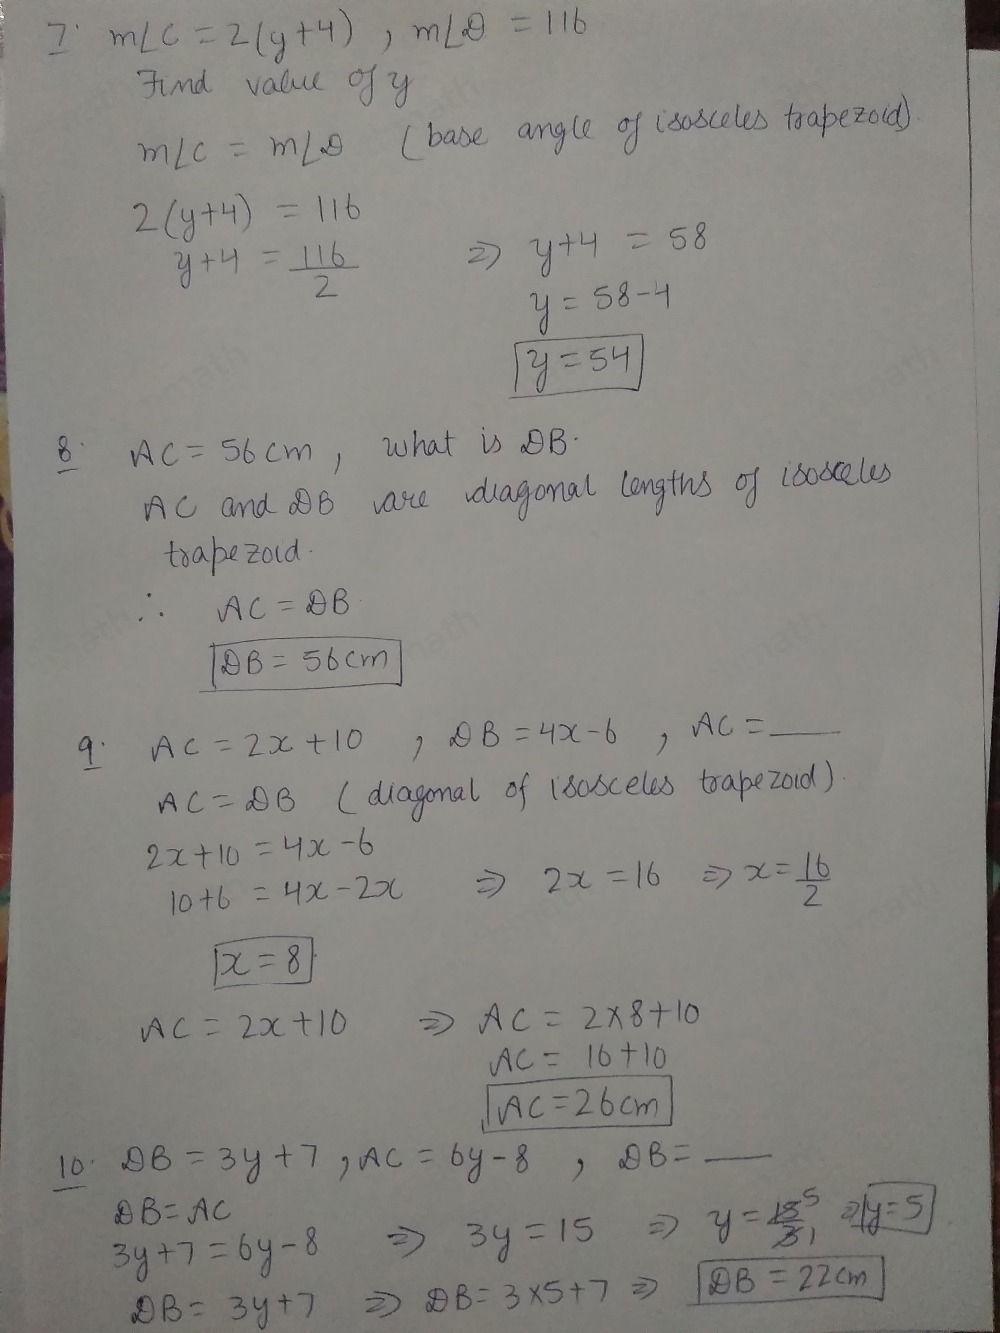 7. m∠C = 2(y+4) , m∠D = 116
Find value of y
m∠C = m∠D (base angle of isosceles trapezoid).
2(y+4) = 116
y+4 = 116/2 ⇒ y+4 = 58
y = 58-4
y = 54
8. AC = 56cm, what is DB.
AC and DB are diagonal lengths of isosceles
trapezoid.
∴ AC = DB
DB = 56cm
9. AC = 2x+10 , DB = 4x-6 , AC = ___
AC = DB (diagonal of isosceles trapezoid).
2x+10 = 4x-6
10+6 = 4x-2x ⇒ 2x = 16 ⇒ x = 16/2
x = 8
AC = 2x+10 ⇒ AC = 2×8+10
AC = 16+10
AC = 26cm
10. DB = 3y+7, AC = 6y-8 , DB = ___
DB = AC
3y+7 = 6y-8 ⇒ 3y = 15 ⇒ y = 15/3 5/1 ⇒ y = 5
DB = 3y+7 ⇒ DB = 3×5+7 ⇒ DB = 22cm